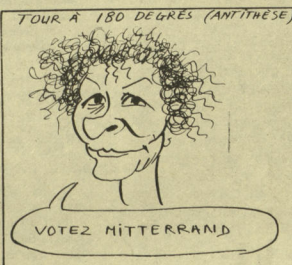 TOUR À 180 DEGRÉS (ANTITHÈSE)
VOTEZ MITTERRAND